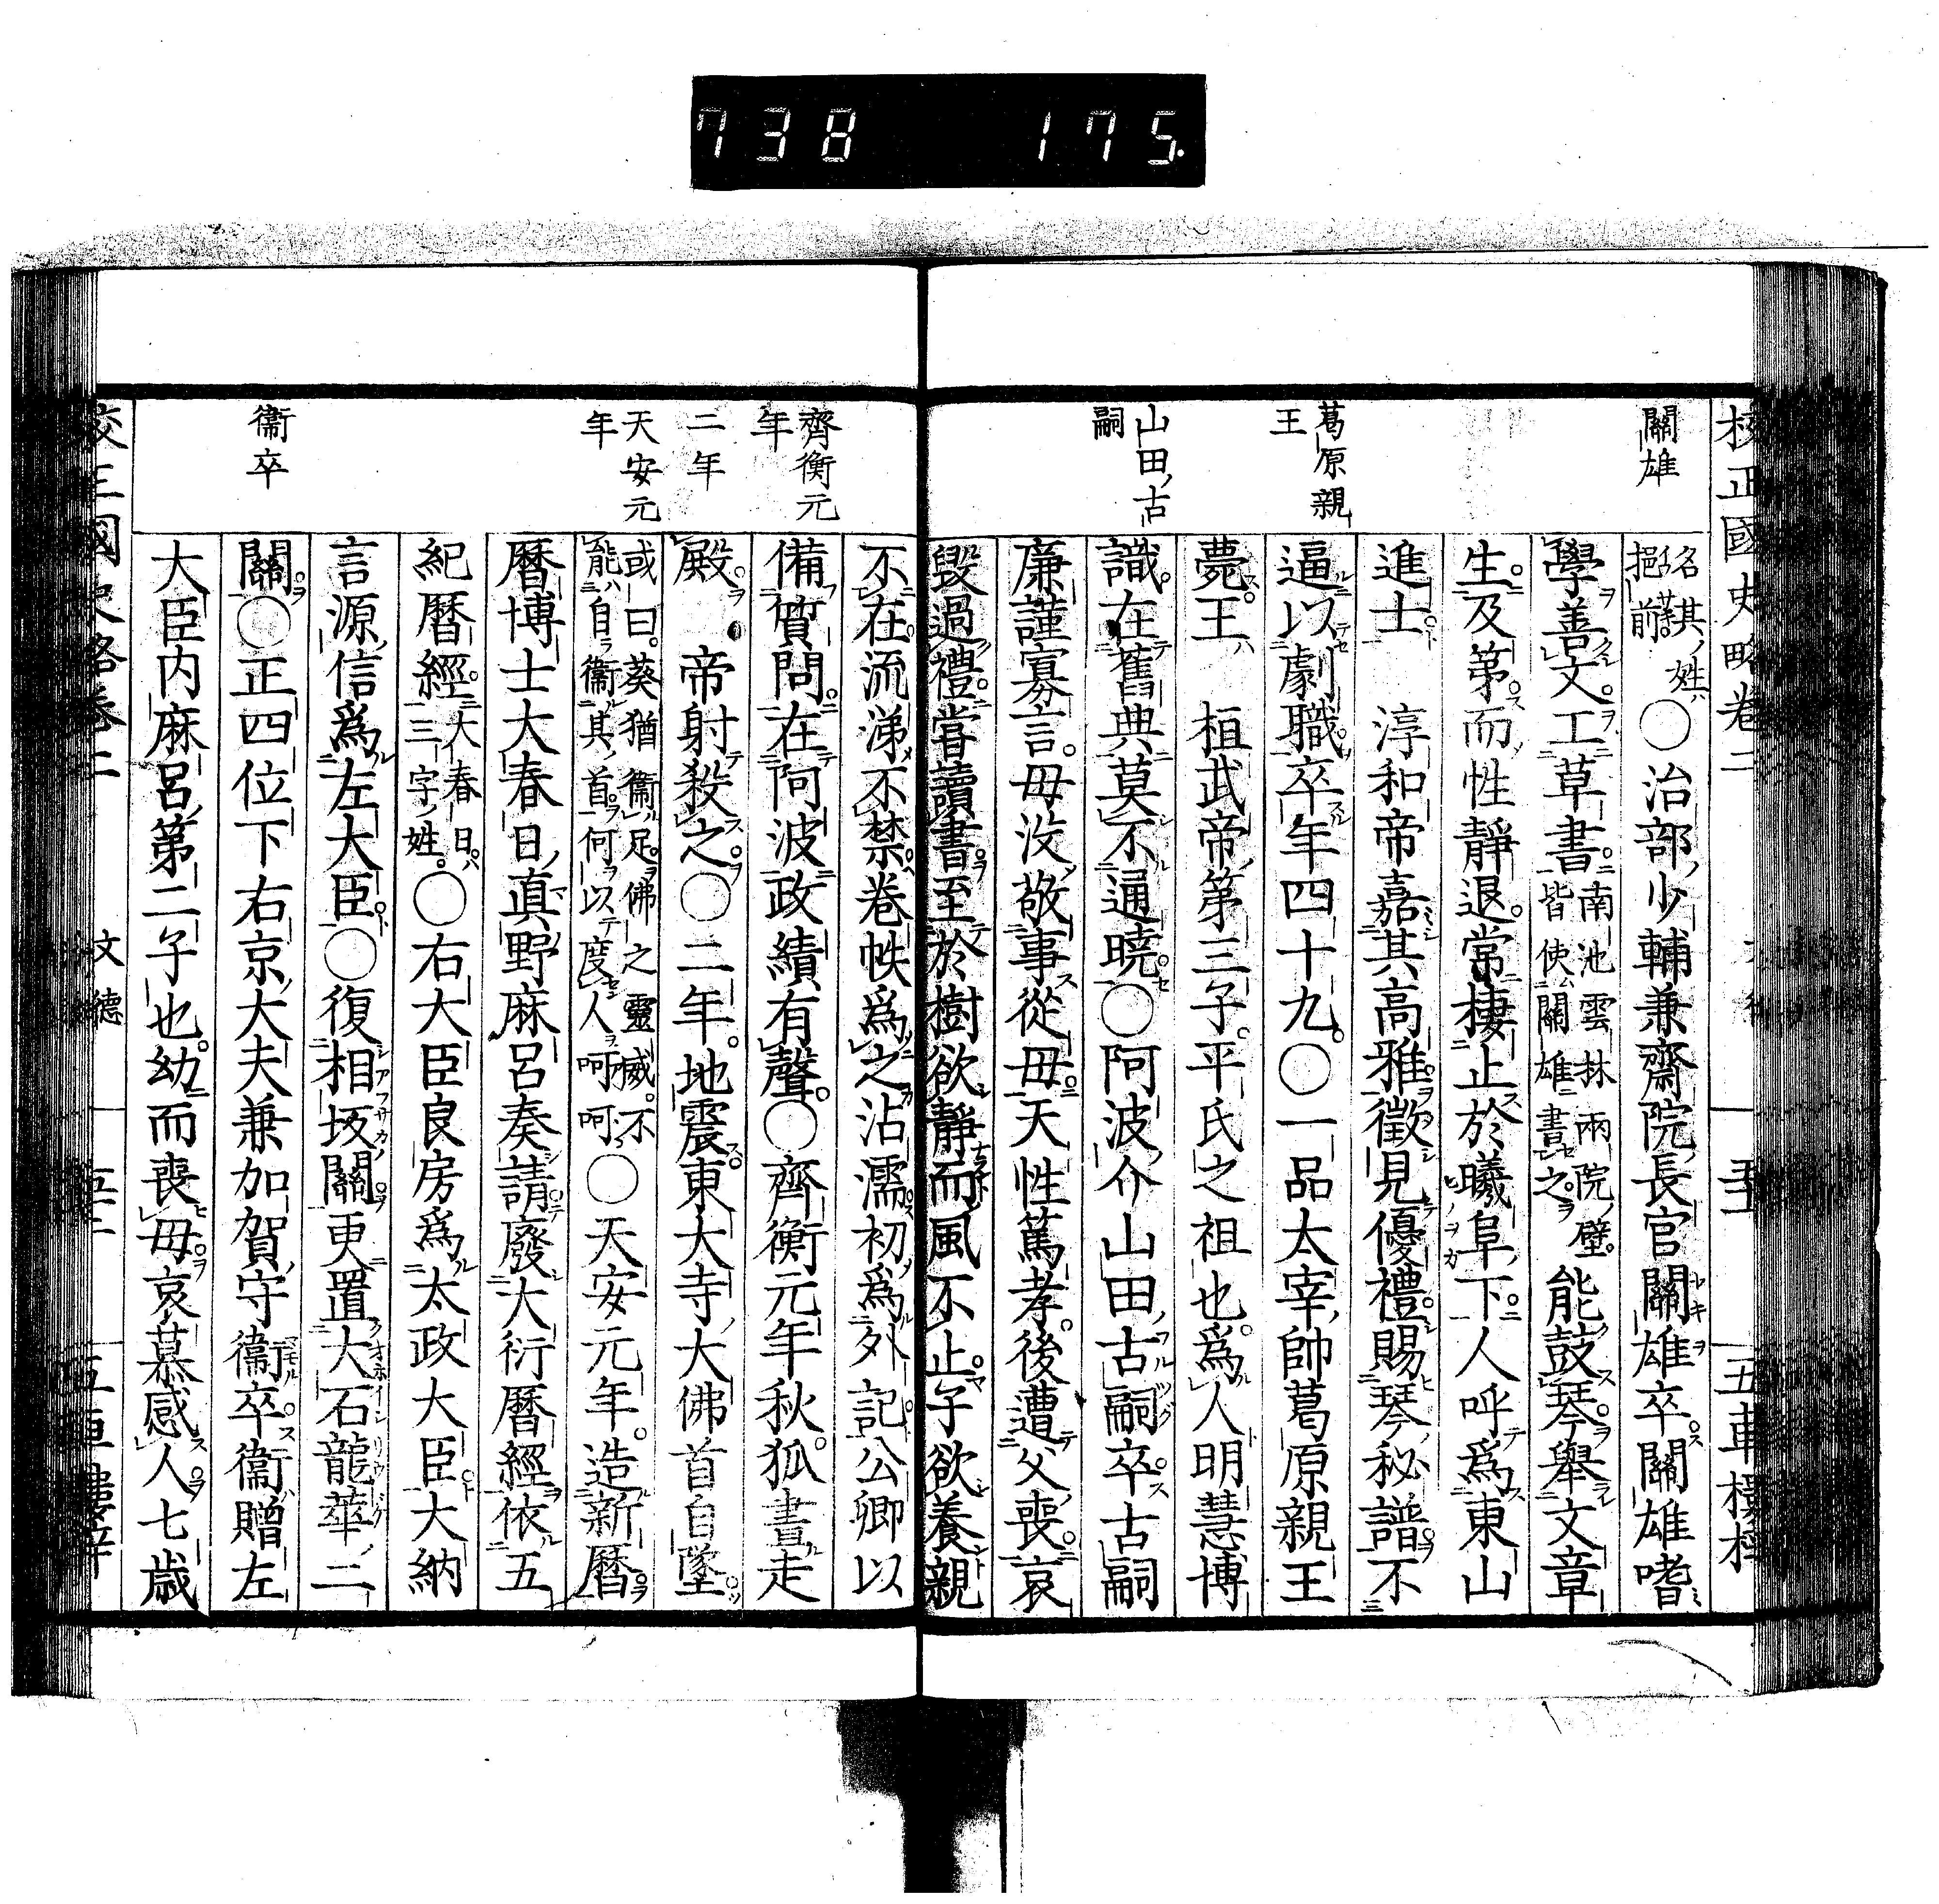 738 175.
校正國史略卷二
五車樓梓
關雄
葛原親
王
山田ノ古
嗣
名其ノ姓ハ
挹前
○治部ノ少輔兼齋院長官關雄卒關雄嗜
學善文工草書
南池雲林兩院ノ壁
皆使關雄書之
能鼓琴舉文章
生及第而性靜退常棲止於曦阜下人呼爲東山
進士 淳和帝嘉其高雅徵見優禮賜琴秘譜不
逼以劇職卒年四十九○一品太宰帥葛原親王
薨王 桓武帝第三子平氏之祖也爲人明慧博
識在舊典莫不通曉○阿波介山田古嗣卒古嗣
廉謹寡言母沒敬事從母天性篤孝後遭父喪哀
毀過禮嘗讀書至於樹欲靜而風不止子欲養親
齊衡元
年
二年
天安元
年
衞卒
不在流涕不禁卷帙爲之沾濡初爲外記公卿以
備質問在阿波政績有聲○齊衡元年秋狐晝走
殿 帝射殺之○二年地震東大寺大佛首自墜
或曰葵猶衞足佛之靈威不
能自衞其首何以度人呵呵
○天安元年造新曆
曆博士大春日真野麻呂奏請廢大衍曆經依五
紀曆經
大春日ハ
三字ノ姓
○右大臣良房爲太政大臣大納
言源信爲左大臣○復相坂關更置大石龍華二
關○正四位下右京大夫兼加賀守衞卒衞贈左
大臣内麻呂第二子也幼而喪母哀慕感人七歲
校正國史略卷二
文德
五車樓梓